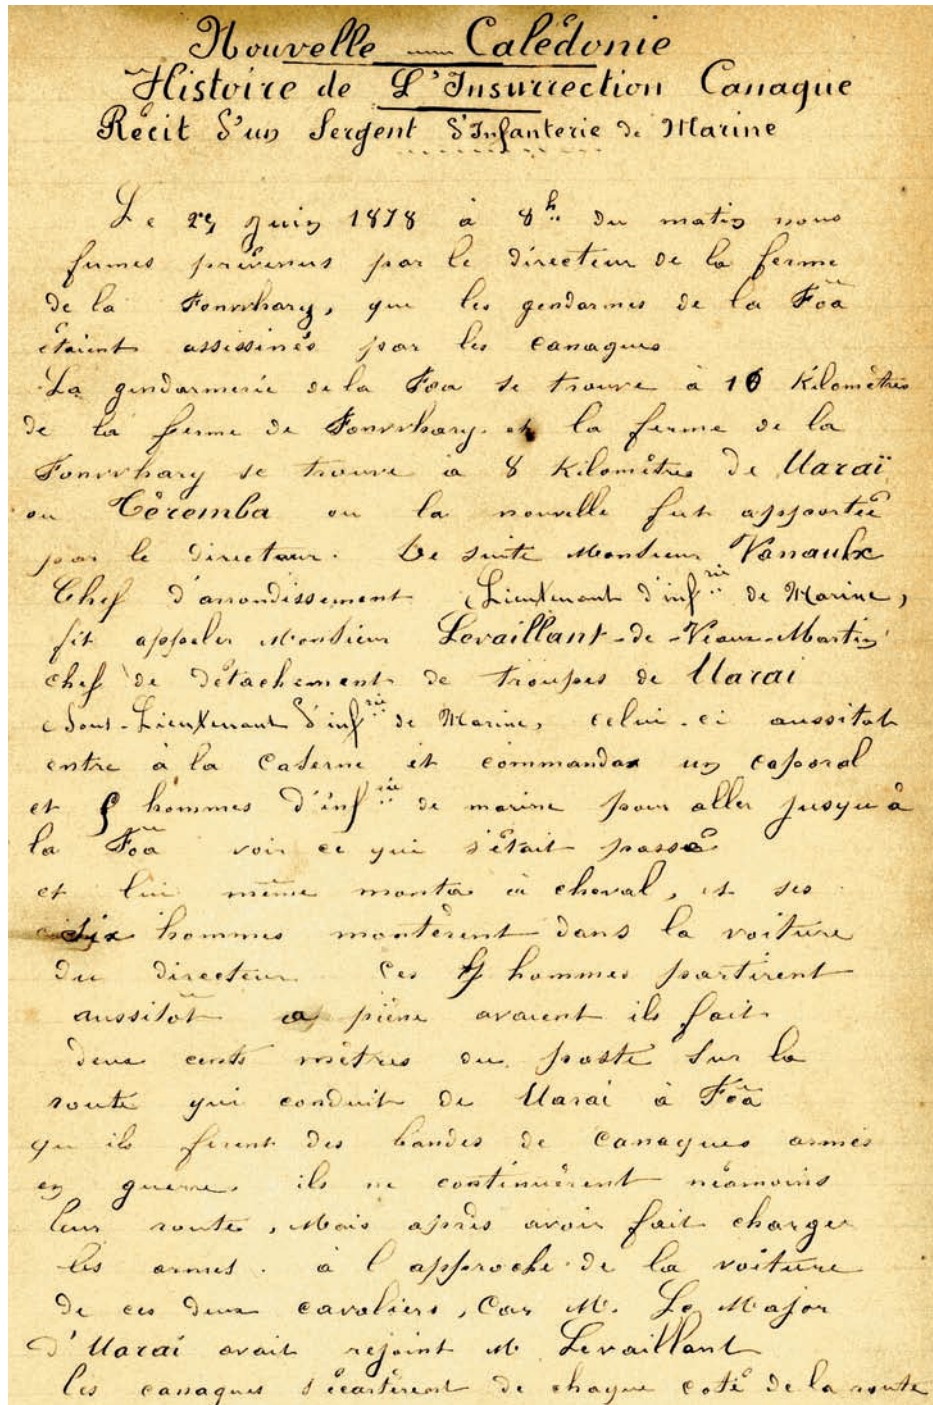 Nouvelle — Calédonie
Histoire de L'Insurrection Canaque
Récit d'un Sergent d'Infanterie de Marine
Le 25 Juin 1878 à 8h du matin nous
fumes prévenus par le directeur de la ferme
de la Fonwhary, que les gendarmes de la Foa
étaient assissinés par les canaques
La gendarmerie de la Foa se trouve à 16 Kilomètres
de la ferme de Fonwhary. et la ferme de la
Fonwhary se trouve à 8 Kilomètres de Uaraï
ou Téremba ou la nouvelle fut apportée
par le directeur. De suite Monsieur Vanaulx
Chef d'arrondissement (Lieutenant d'infrie de Marine,
fit appeler Monsieur Levaillant-de-Veaux-Martin
chef de détachement de troupes de Uarai
(Sous-Lieutenant d'infrie de Marine, celui-ci aussitot
entre à la Caserne et commanda un caporal
et 5 hommes d'infrie de marine pour aller jusqu'à
la Foa voir ce qui s'était passé
et lui même monta à cheval, et ses
six hommes montèrent dans la voiture
du directeur Ces hommes partirent
aussitôt a piène avaient ils fait
deux cents mètres du poste sur la
route qui conduit de Uarai à Foa
qu ils firent des bandes de canaques armés
en guerre. ils ne continuèrent néamoins
leur route, Mais après avoir fait charger
les armes. à l approche de la voiture
de ces deux cavaliers, Car M. Le Major
d'Uaraï avait rejoint M Levaillant
les canaques s'écartèrent de chaque coté de la route